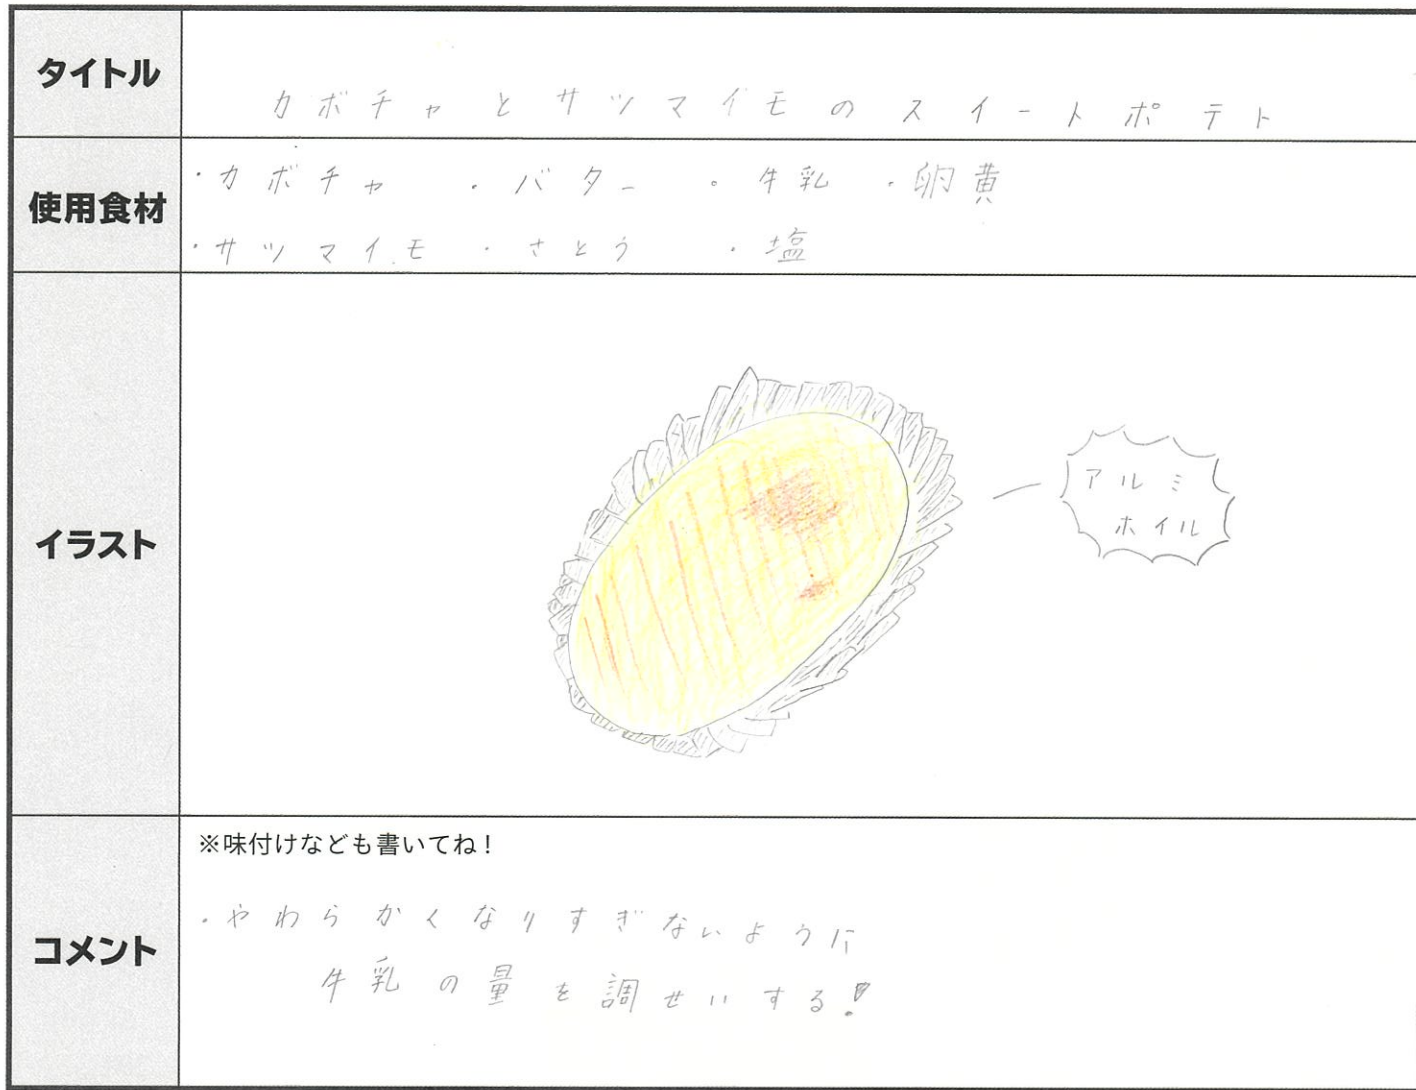 タイトル
カボチャとサツマイモのスイートポテト
使用食材
・カボチャ ・バター ・牛乳 ・卵黄
・サツマイモ ・さとう ・塩
イラスト
アルミ
ホイル
コメント
※味付けなども書いてね！
・やわらかくなりすぎないように
牛乳の量を調せいする！